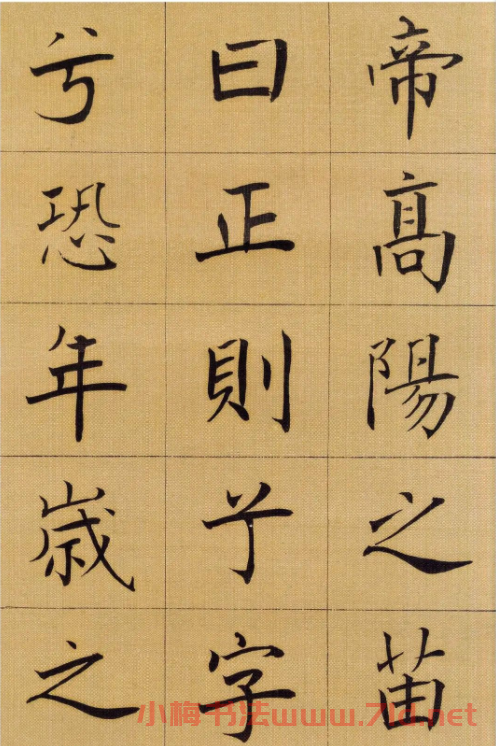 帝高陽之苗
曰正則兮字
兮恐年歲之
小梅书法www.7ld.net